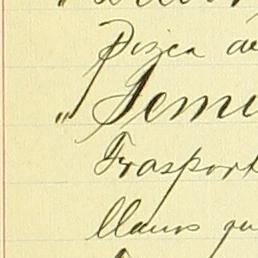 Pizca de
" Semi
Trasport
llanos qu